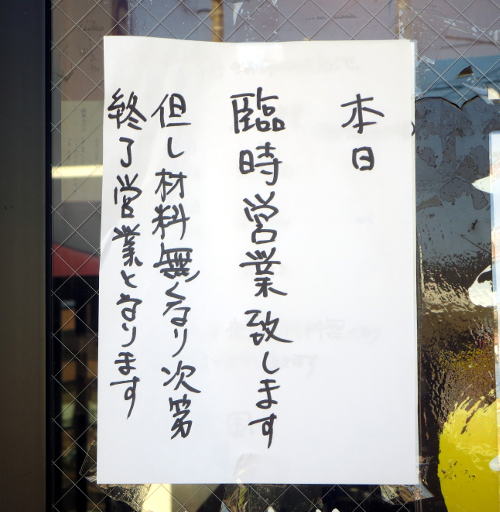 本日
臨時営業致します
但し材料無くなり次第
終了営業となります